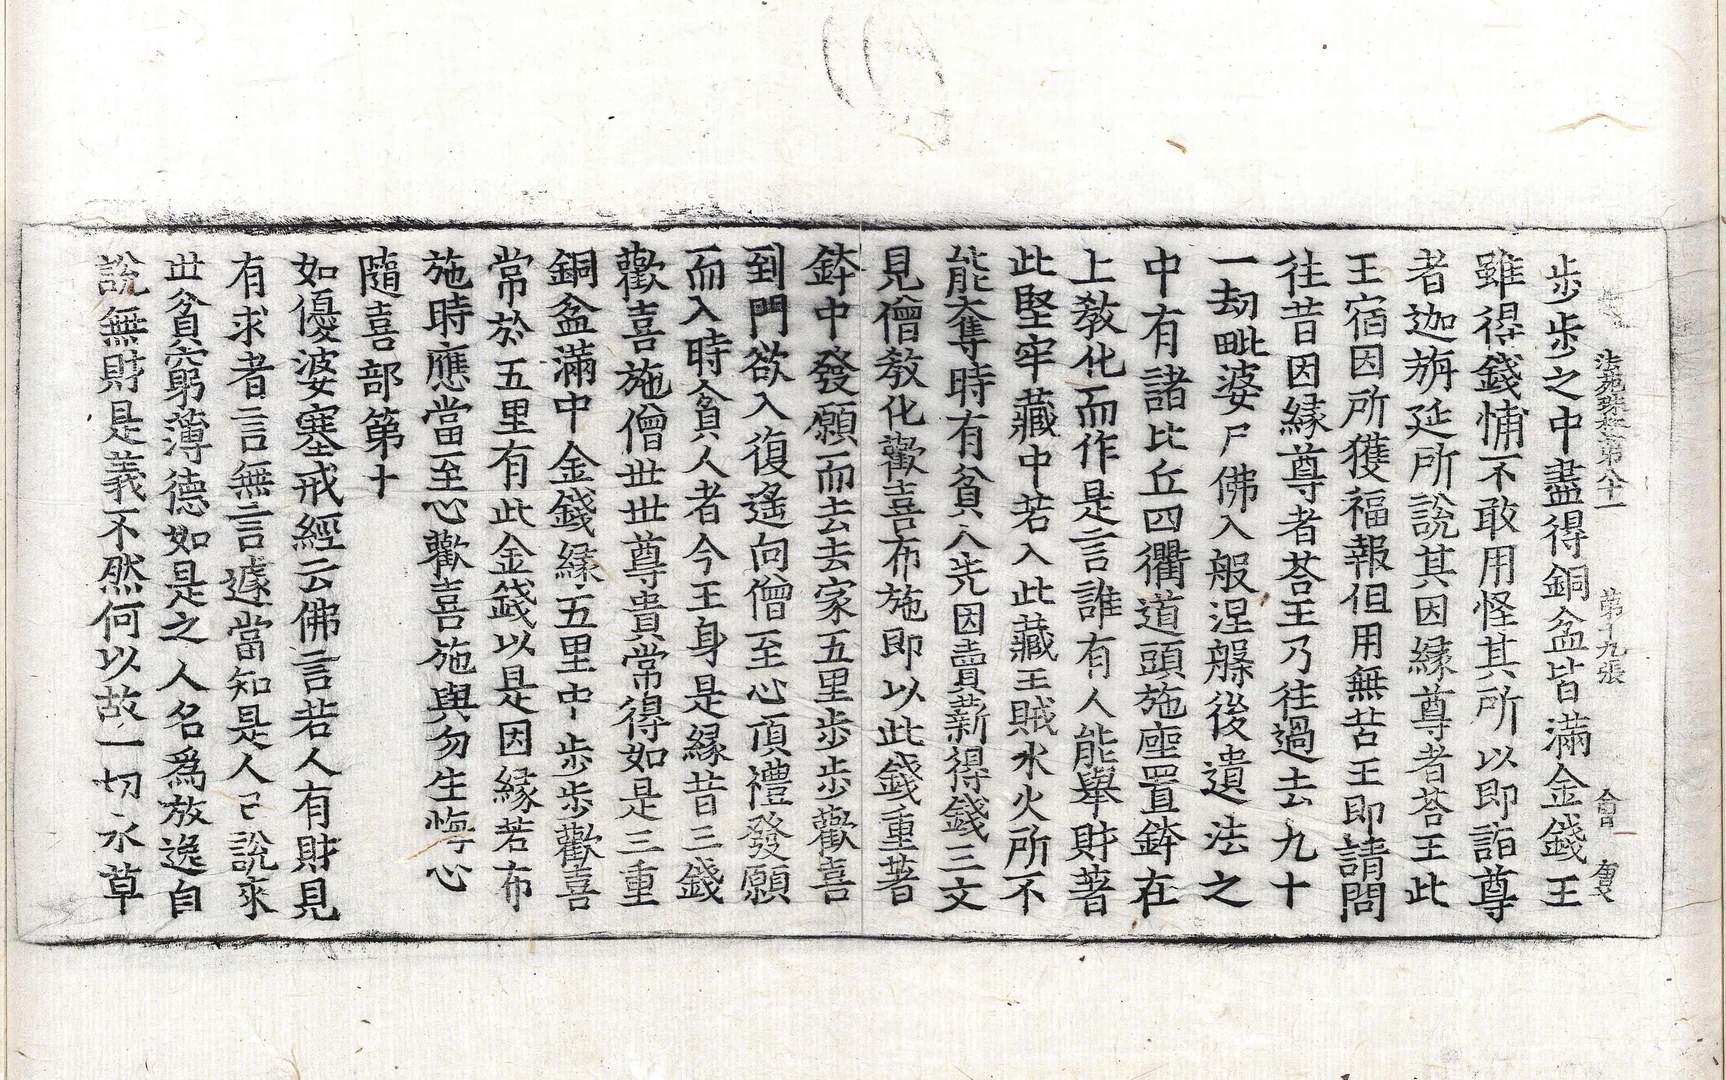 法苑珠林第八十一 第十九張 會
步步之中盡得銅盆皆滿金錢王
雖得錢悑不敢用怪其所以即詣尊
者迦旃延所說其因緣尊者荅王此
王宿因所獲福報但用無苦王即請問
往昔因緣尊者荅王乃往過去九十
一劫毗婆尸佛入般涅槃後遺法之
中有諸比丘四衢道頭施㘴置鉢在
上敎化而作是言誰有人能舉財著
此堅牢藏中若入此藏王賊水火所不
能奪時有貧人先因賣薪得錢三文
見僧敎化歡喜布施即以此錢重著
鉢中發願而去去家五里步步歡喜
到門欲入復遙向僧至心頂禮發願
而入時貧人者今王身是緣昔三錢
歡喜施僧世世尊貴常得如是三重
銅盆滿中金錢緣五里中步步歡喜
常於五里有此金錢以是因緣若布
施時應當至心歡喜施與勿生悔心
隨喜部第十
如優婆塞戒經云佛言若人有財見
有求者言無言遽當知是人已說來
世貧窮薄德如是之人名爲放逸自
說無財是義不然何以故一切水草